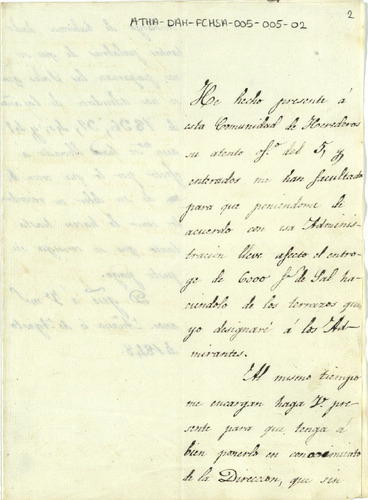 ATHA-DAH-FCHSA-005-005-02
2
He hecho presente á
esta Comunidad de Herederos
su atento of.º del 5, y
enterados me han facultado
para que poniendome de
acuerdo con esa Adminis-
tracion lleve afecto el entre-
ge de 6000 f.s de Sal ha-
ciendolo de los terrazos que
yo designaré á los Ad-
mirantes.
Al mismo tiempo
me encargan haga V. pre-
sente para que tenga á
bien ponerlo en conocimiento
de la Direccion, que sin